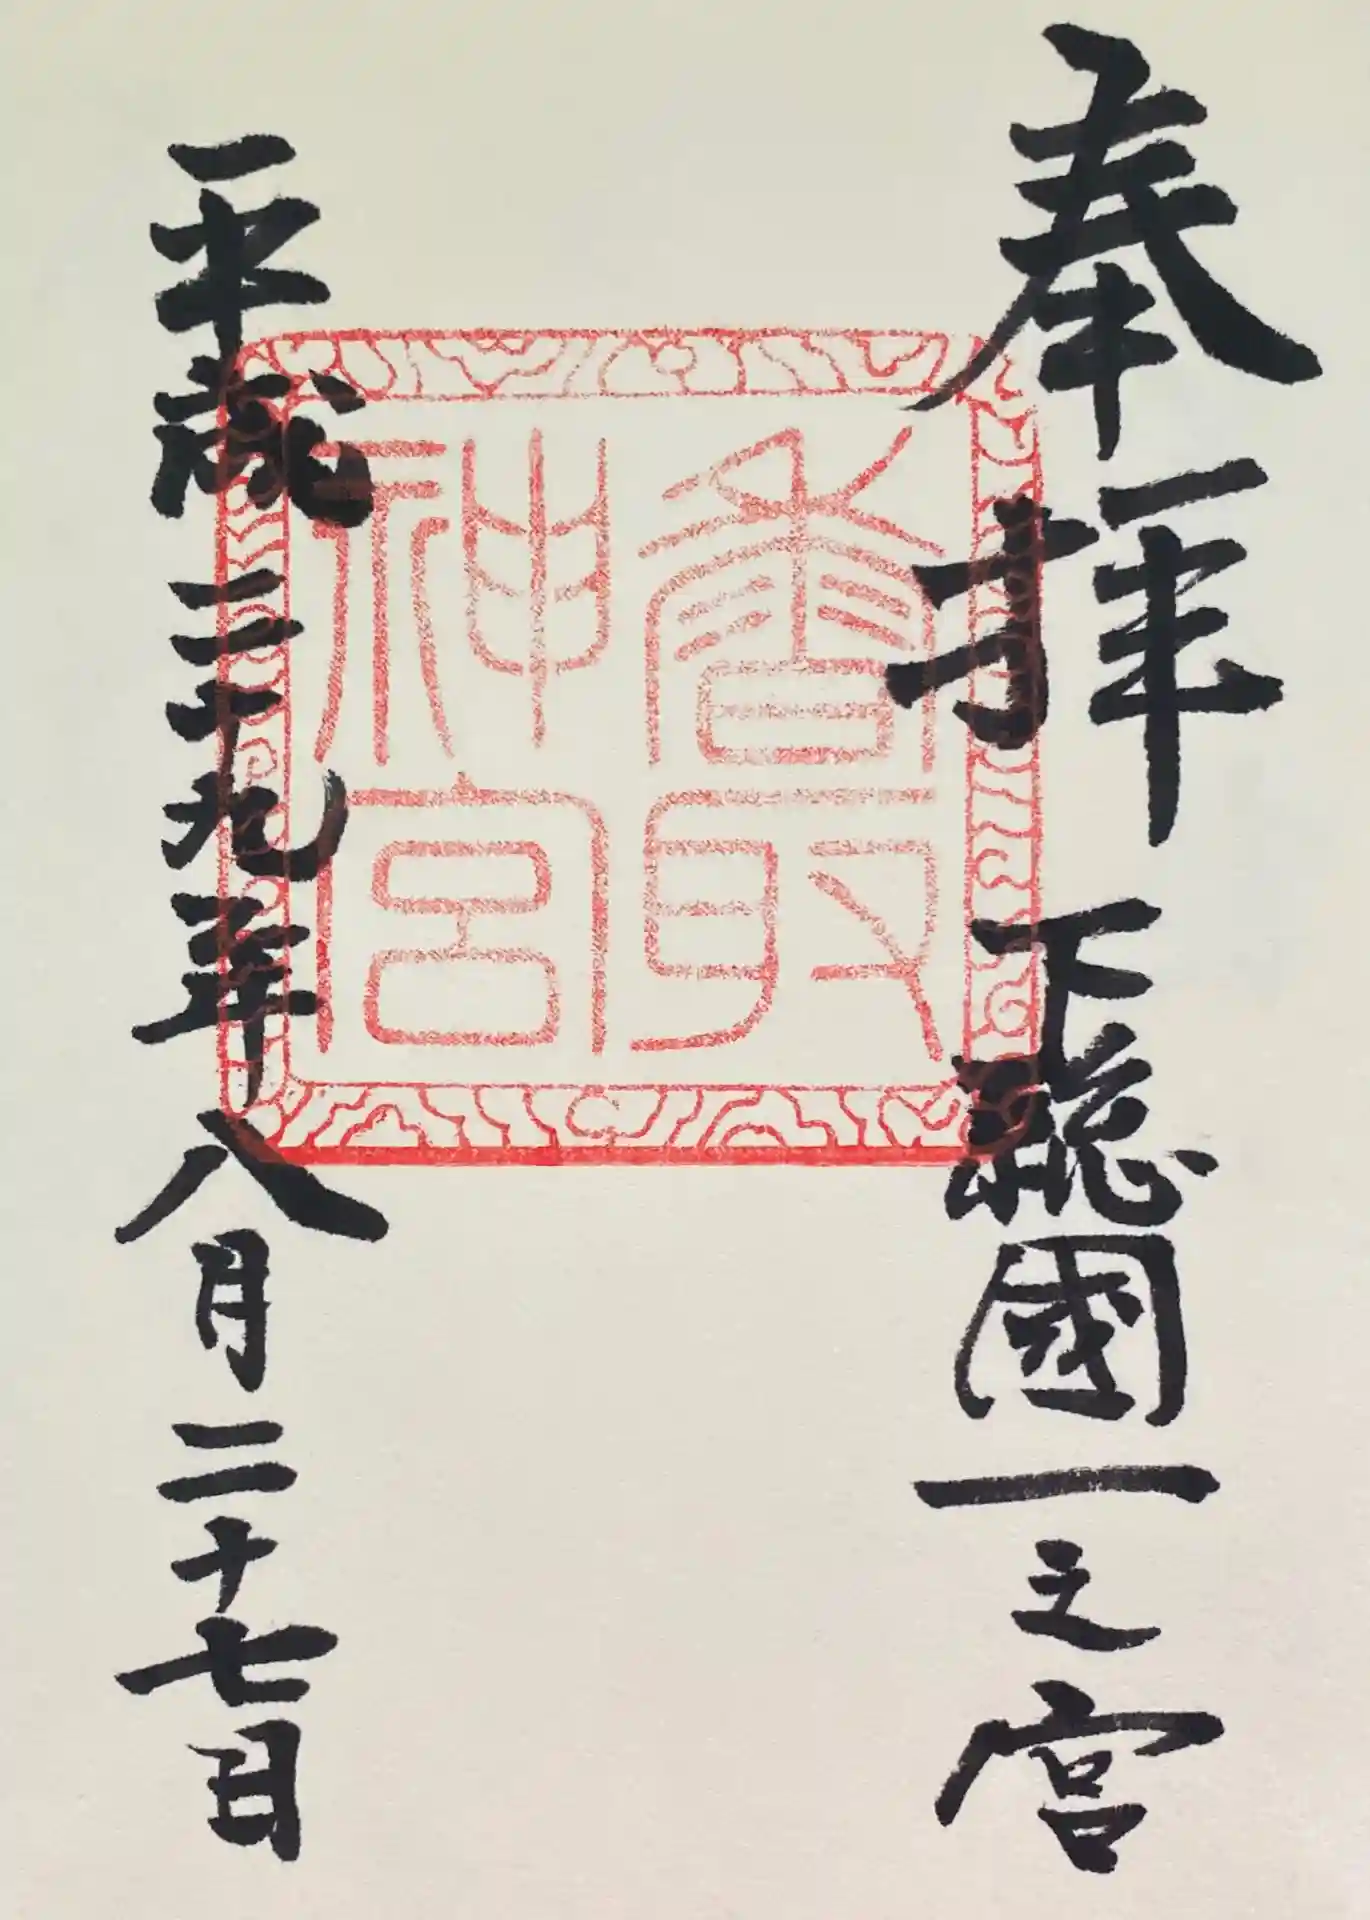 奉拝
下総國一之宮
香取神宮
平成二十九年八月二十七日